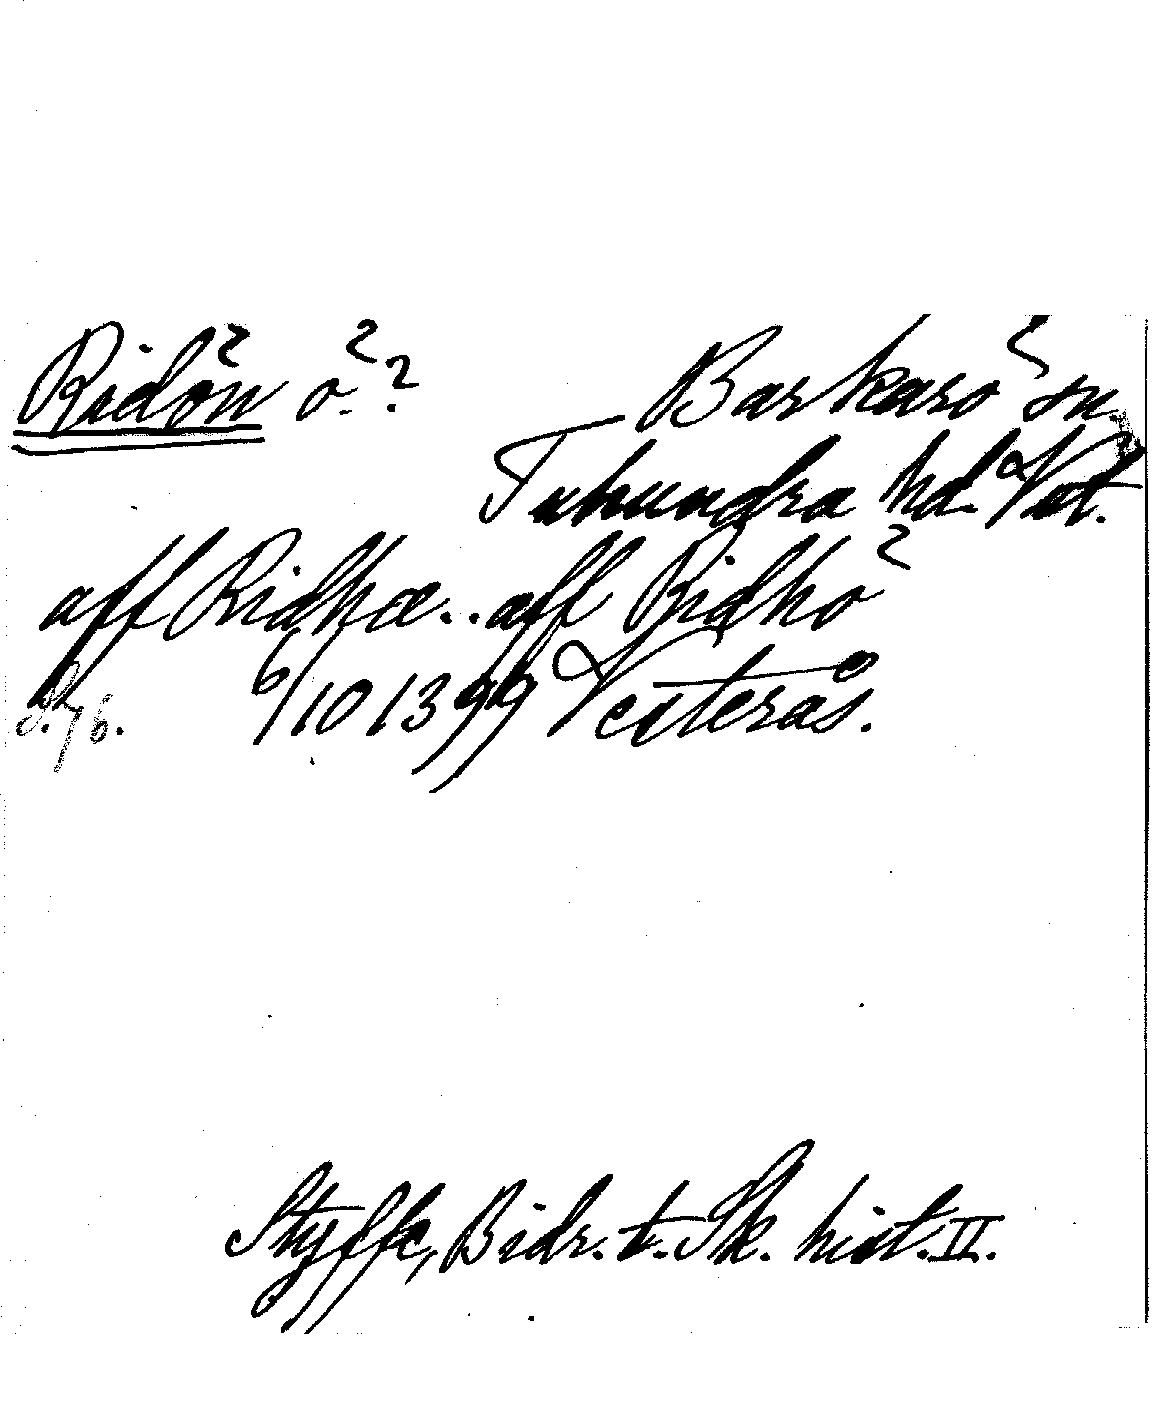 Ridön ö.? Barkarö sn
Tuhundra hd. Vstm.
aff Ridhæ .. aff Ridhö
s. 76. 6/10 1399 Vesterås.
Styffe, Bidr. t. Sk. hist. II.